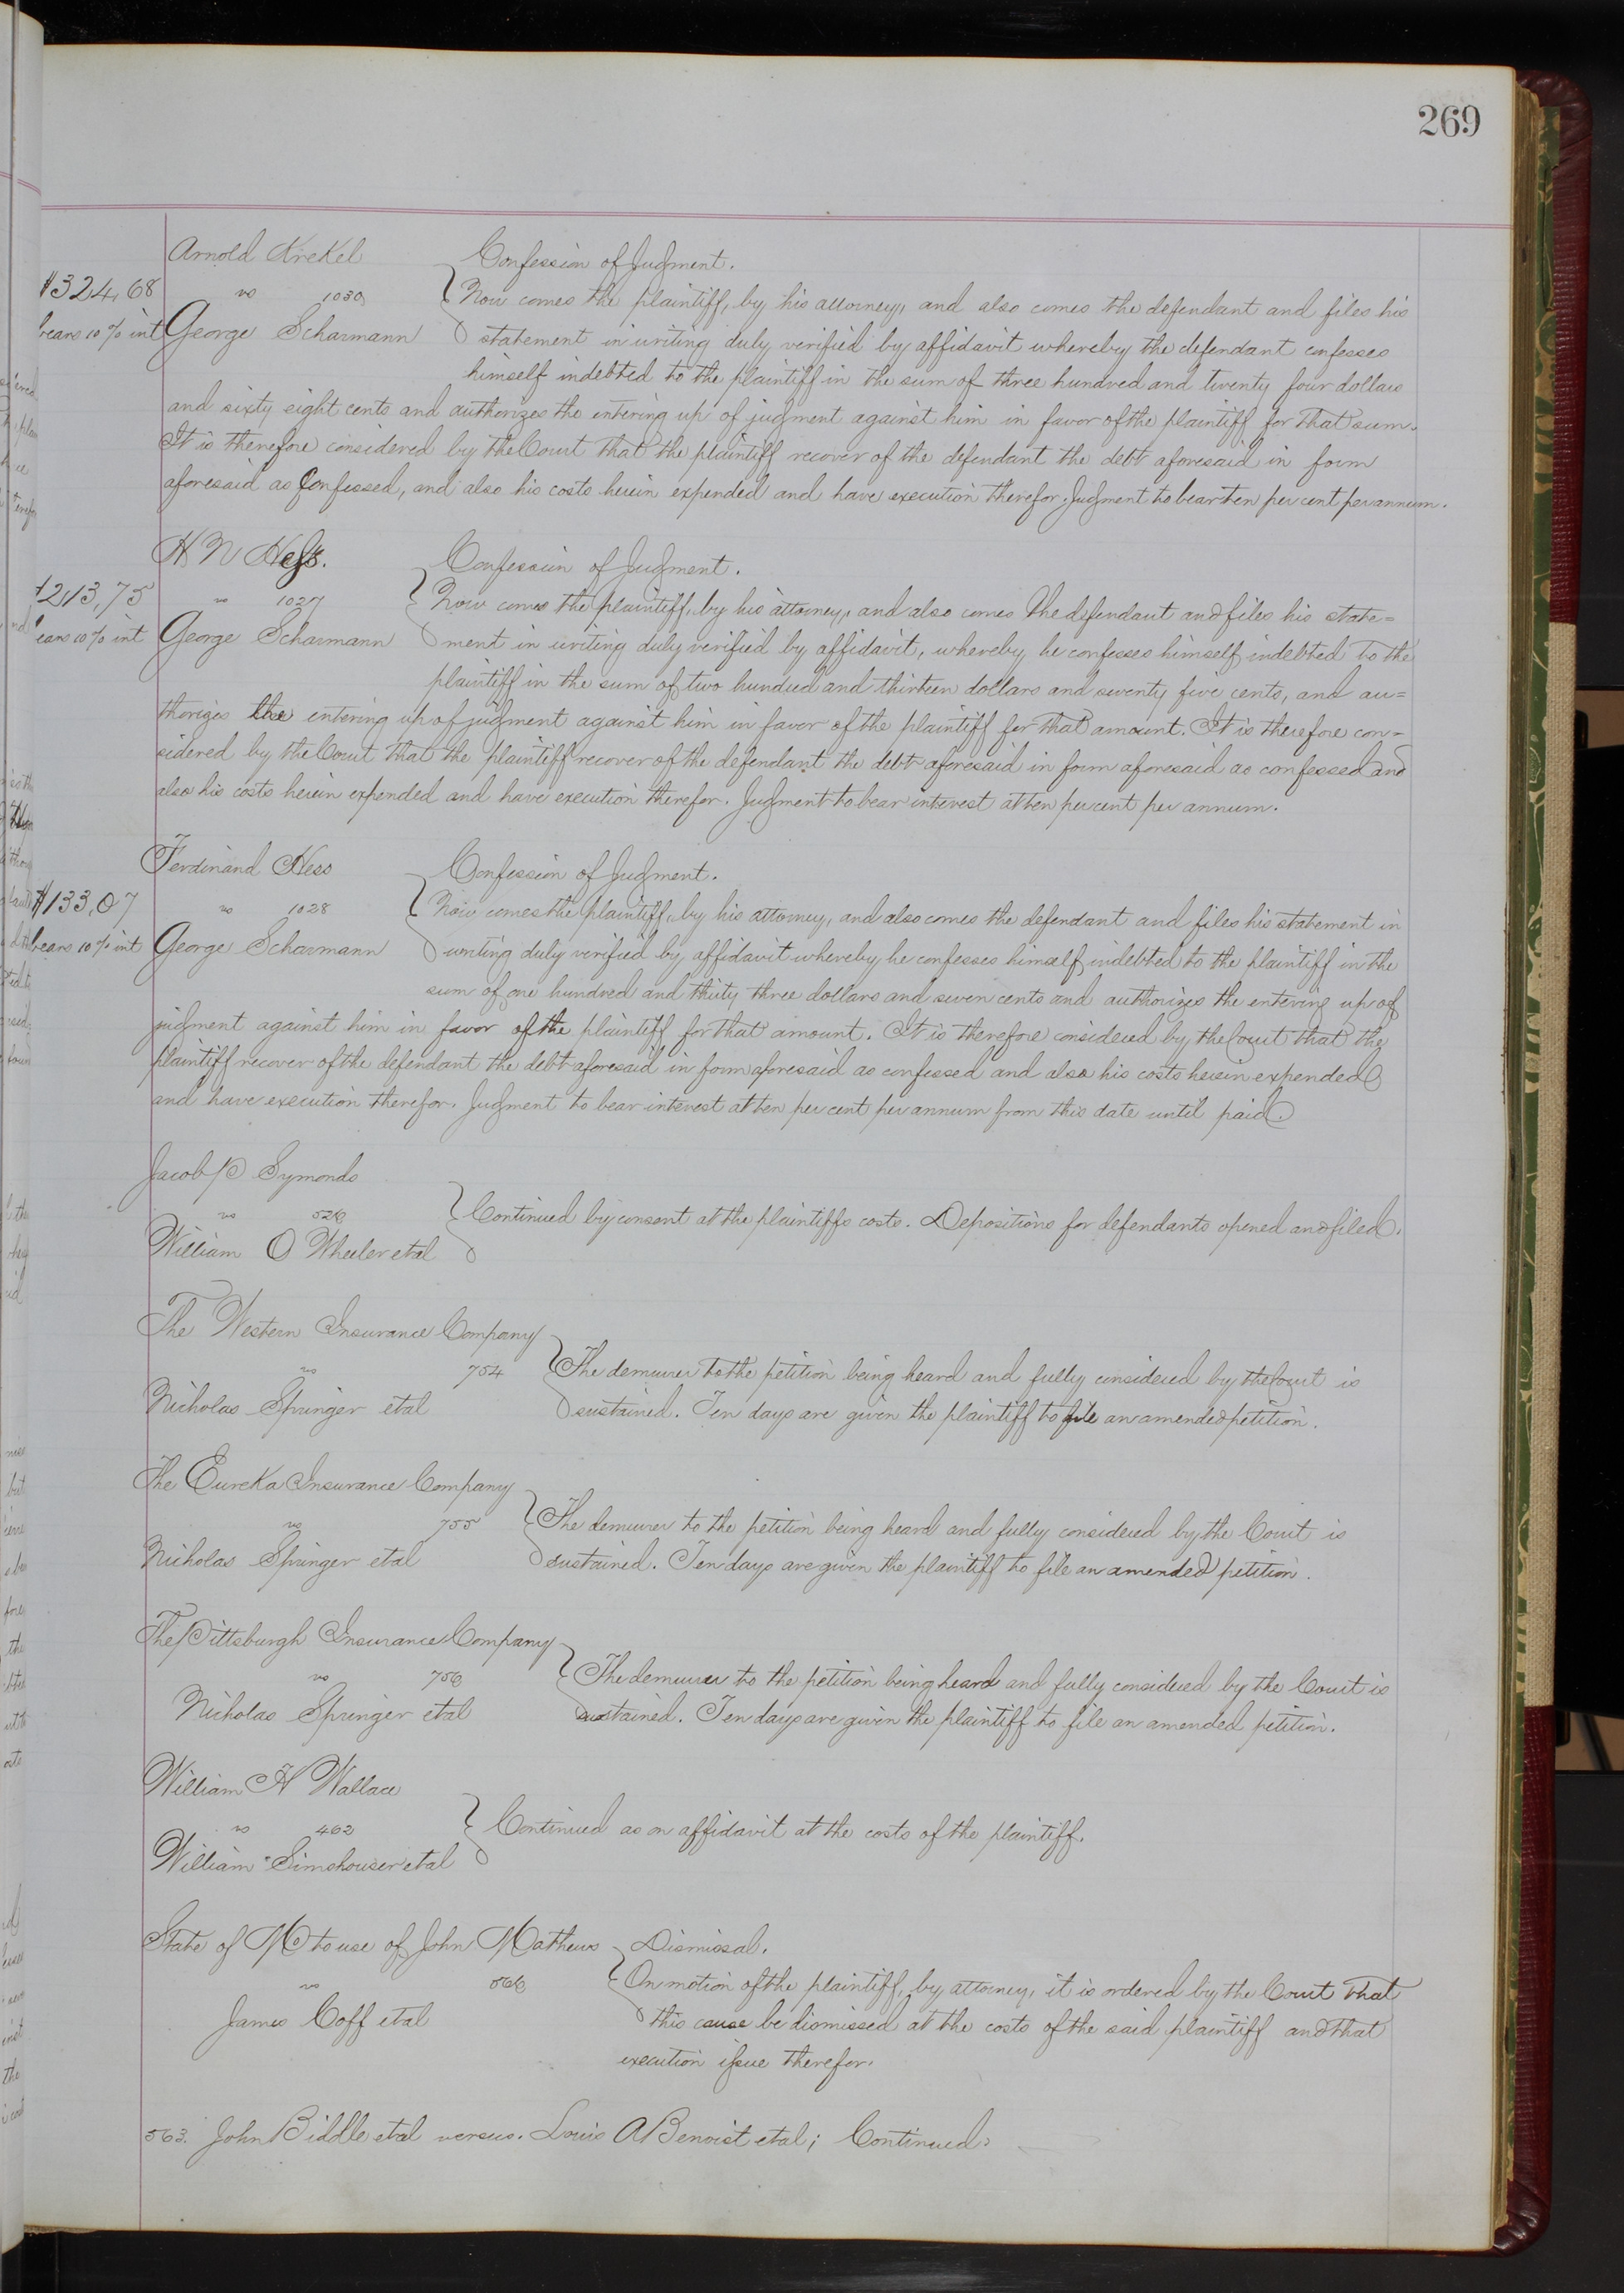 269
Arnold Krekel Confession of Judgment.
$324,68 vs 1030 Now comes the plaintiff, by his attorney, and also comes the defendant and files his
bears 10% int George Scharmann statement in writing duly verified by affidavit whereby the defendant confesses
himself indebted to the plaintiff in the sum of three hundred and twenty four dollars
and sixty eight cents and authorizes the entering up of judgment against him in favor of the plaintiff for that sum.
It is therefore considered by the Court that the plaintiff recover of the defendant the debt aforesaid in form
aforesaid as Confessed, and also his costs herein expended and have execution therefor. Judgment to bear ten per cent per annum.
H N Hess. Confession of Judgment.
213,75 vs 1027 Now comes the plaintiff, by his attorney, and also comes the defendant and files his state=
ears 10% int George Scharmann ment in writing duly verified by affidavit, whereby he confesses himself indebted to the
plaintiff in the sum of two hundred and thirteen dollars and seventy five cents, and au=
thorizes the entering up of judgment against him in favor of the plaintiff for that amount. It is therefore con=
sidered by the Court that the plaintiff recover of the defendant the debt aforesaid in form aforesaid as confessed and
also his costs herein expended and have execution therefor. Judgment to bear interest at ten per cent per annum.
Ferdinand Hess Confession of Judgment.
$133,07 vs 1028 Now comes the plaintiff, by his attorney, and also comes the defendant and files his statement in
bears 10% int George Scharmann writing duly verified by affidavit whereby he confesses himself indebted to the plaintiff in the
sum of one hundred and thirty three dollars and seven cents and authorizes the entering up of
judgment against him in favor of the plaintiff for that amount. It is therefore considered by the Court that the
plaintiff recover of the defendant the debt aforesaid in form aforesaid as confessed and also his costs herein expended
and have execution therefor. Judgment to bear interest at ten per cent per annum from this date until paid.
Jacob P Symonds
vs 526 Continued by consent at the plaintiffs costs. Depositions for defendants opened and filed.
William O Wheeler etal
The Western Insurance Company
vs 754 The demurrer to the petition being heard and fully considered by the Court is
Nicholas Springer etal sustained. Ten days are given the plaintiff to file an amended petition.
The Eureka Insurance Company
vs 755 The demurrer to the petition being heard and fully considered by the Court is
Nicholas Springer etal sustained. Ten days are given the plaintiff to file an amended petition.
The Pittsburgh Insurance Company
vs 756 The demurrer to the petition being heard and fully considered by the Court is
Nicholas Springer etal sustained. Ten days are given the plaintiff to file an amended petition.
William H Wallace
vs 462 Continued as on affidavit at the costs of the plaintiff.
William Simshouser etal
State of Mo to use of John Mathews Dismissal.
vs 566 On motion of the plaintiff, by attorney, it is ordered by the Court that
James Coff etal this cause be dismissed at the costs of the said plaintiff and that
execution issue therefor.
563. John Biddle etal versus. Louis A Benoist etal; Continued.